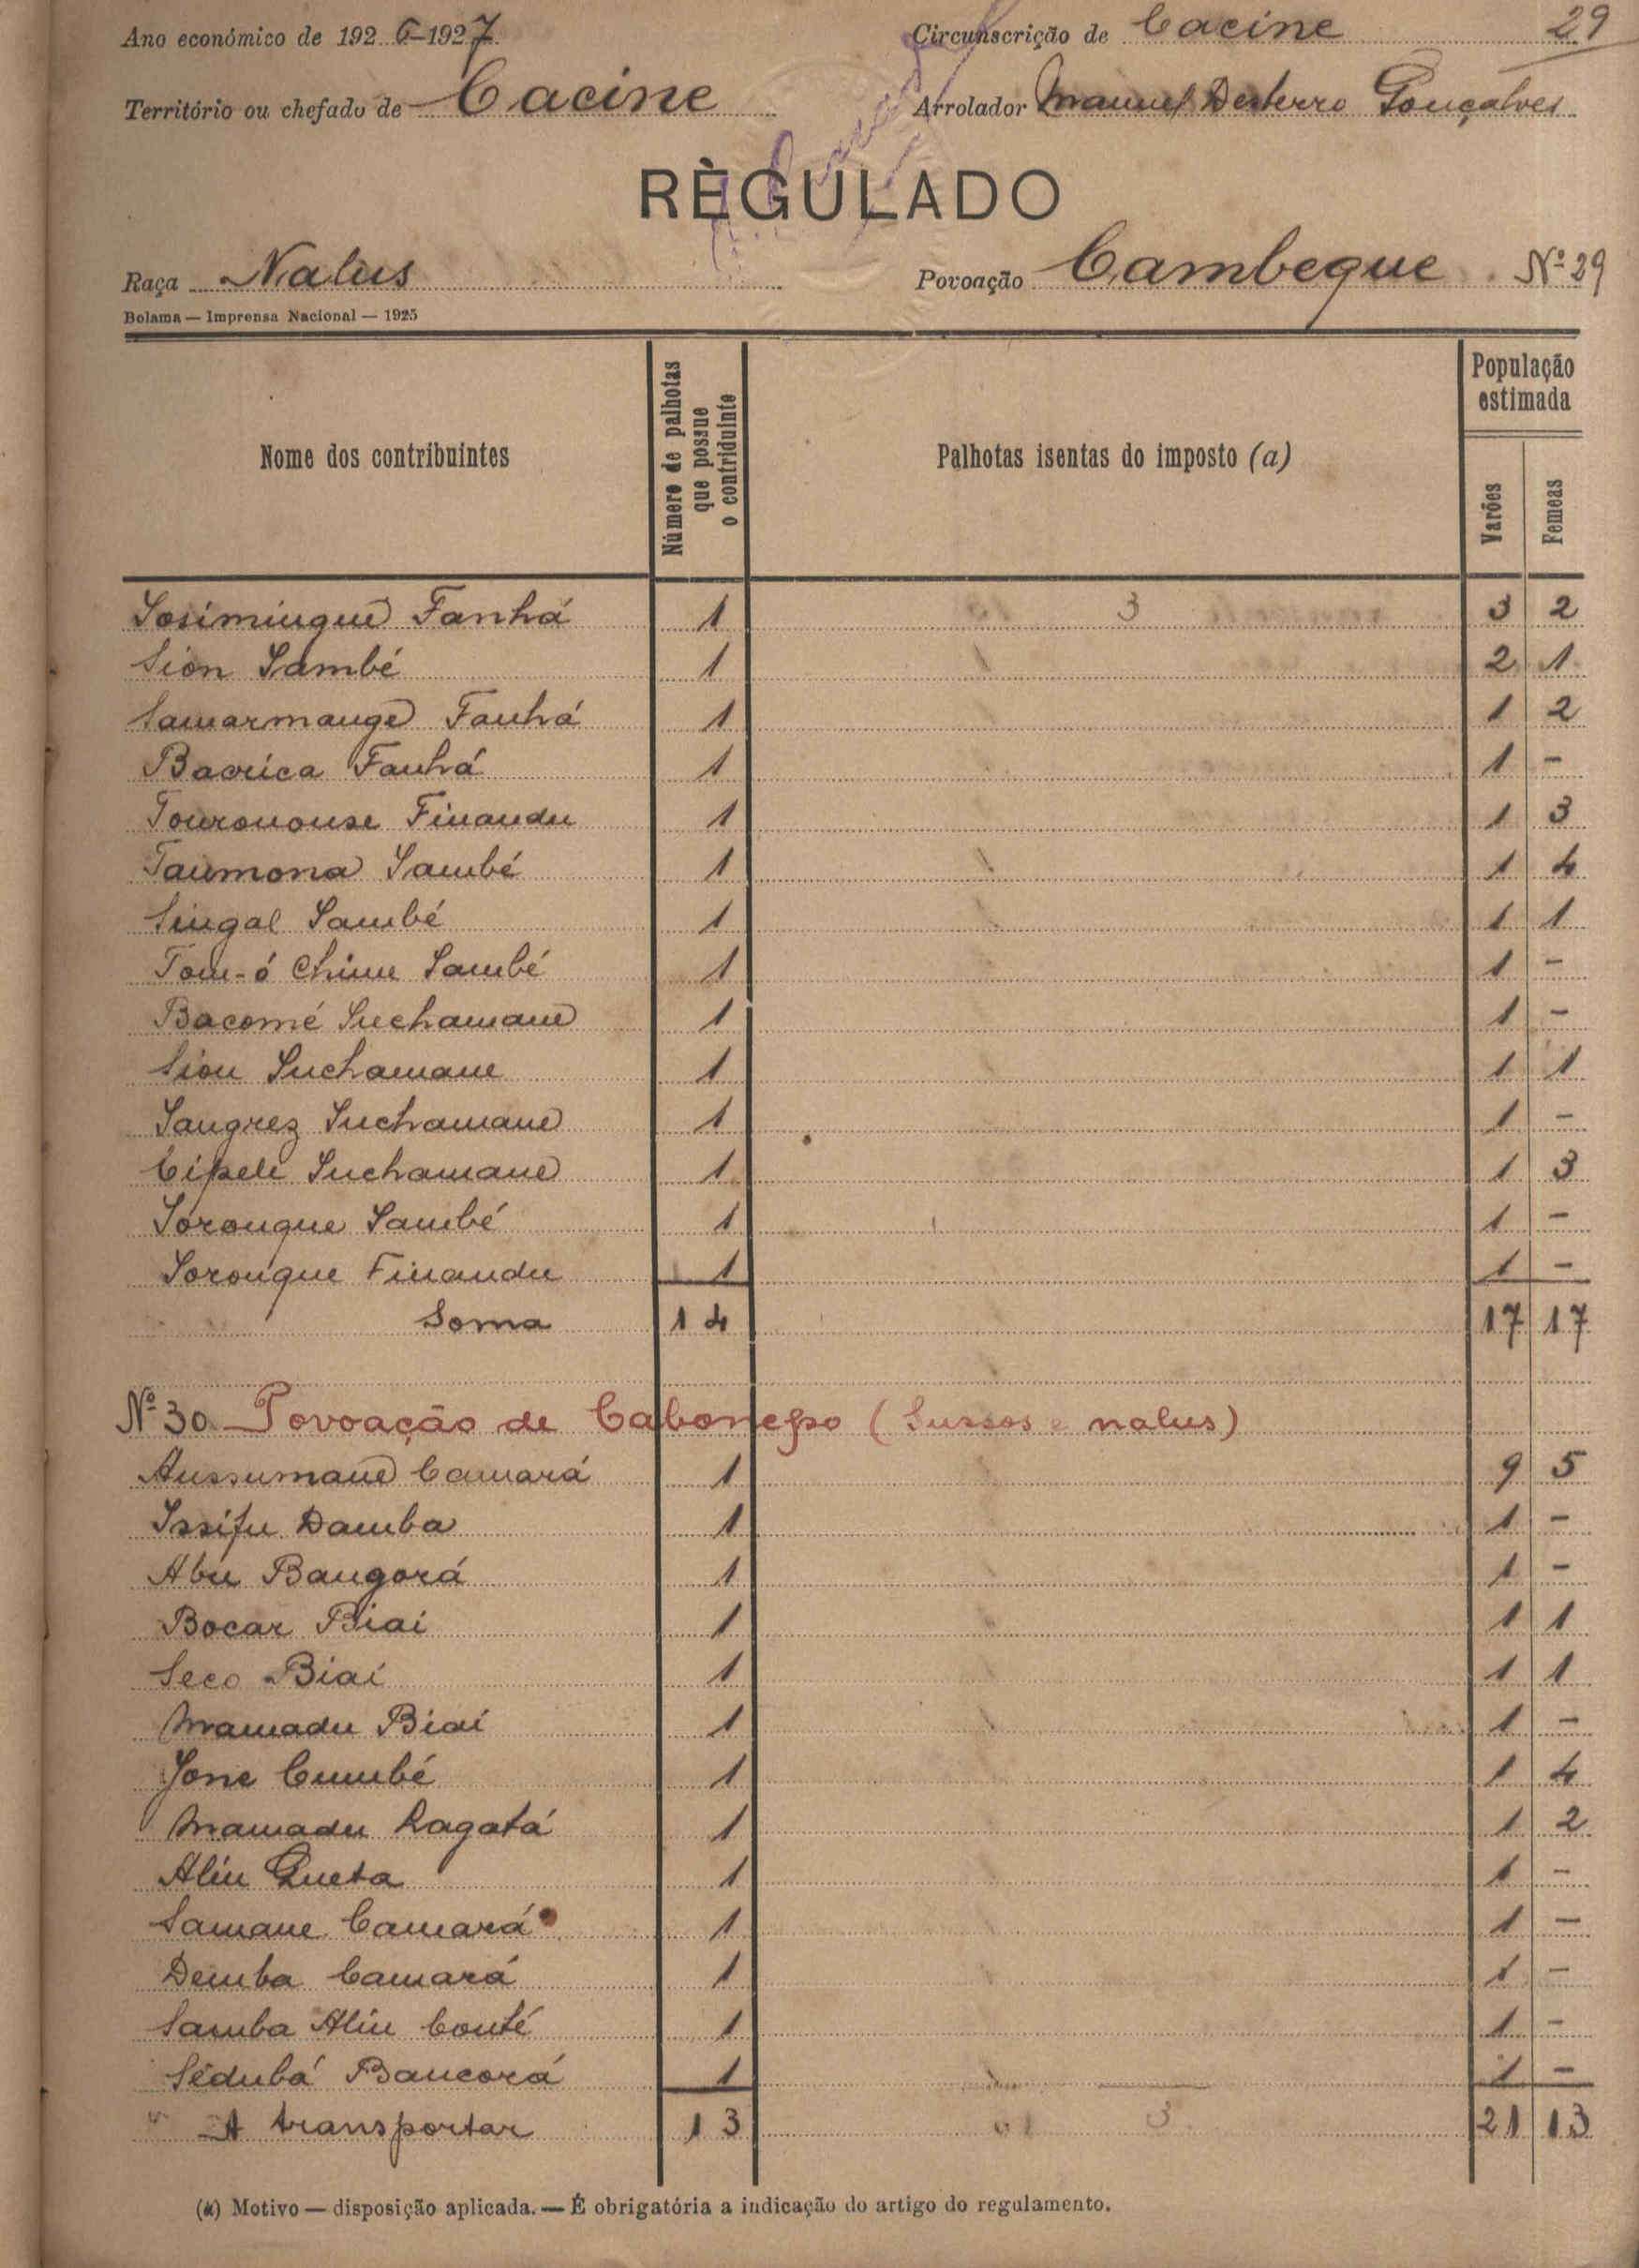 Ano económico de 1926-1927 Circunscrição de Cacine 29
Território ou chefado de Cacine Arrolador Manuel Desterro Gonçalves
RÈGULADO
Raça Nalus Povoação Cambeque Nº 29
Bolama — Imprensa Nacional — 1925
Nome dos contribuintes
Número de palhotas que possue o contriduinte
Palhotas isentas do imposto (a)
População estimada
Varões Femeas
Sosimingue Fanhá 1 3 3 2
Sion Sambé 1 2 1
Samarmange Fanhá 1 1 2
Bacrica Fanhá 1 1 -
Touronouse Finandu 1 1 3
Taumona Sambé 1 1 4
Singal Sambé 1 1 1
Tom-ó Chime Sambé 1 1 -
Bacomé Suchamane 1 1 -
Sion Suchamane 1 1 1
Sangrez Suchamane 1 1 -
Cipele Suchamane 1 1 3
Soronque Sambé 1 1 -
Soronque Finandu 1 1 -
Soma 14 17 17
Nº 30 Povoação de Cabonepo (Sussos e nalus)
Aussumane Camará 1 9 5
Issifu Damba 1 1 -
Abu Bangorá 1 1 -
Bocar Biai 1 1 1
Seco Biai 1 1 1
Mamadu Biai 1 1 -
Jone Cumbé 1 1 4
Mamadu Ragatá 1 1 2
Aliu Queta 1 1 -
Samane Camará 1 1 -
Demba Camará 1 1 -
Samba Aliu Conté 1 1 -
Sedubá Bancorá 1 1 -
A transportar 13 3 21 13
(a) Motivo — disposição aplicada. — É obrigatória a indicação do artigo do regulamento.